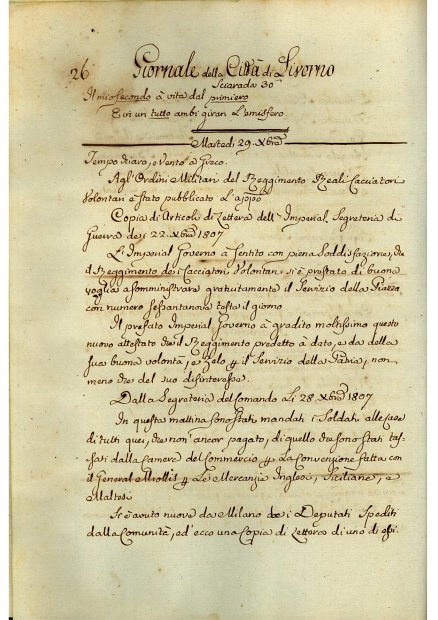 26
Giornale della Città di Livorno
Sciarada 30
Il mio secondo à vita dal primiero
E in un tutto ambi giran l'emisfero
Martedì 29. Xbre
Tempo chiaro, e Vento a Greco.
Agl'Ordini Militari del Reggimento Reali Cacciatori
Volontari è stato pubblicato l'app.o
Copia di Articoli di Lettera dell'Imperial. Segreteria di
Guerra de i 22. Xbre 1807
L'Imperial Governo à Sentito con piena Soddisfazione, che
il Reggimento de i Cacciatori Volontari si è prestato di buona
voglia a somministrare gratuitamente il Servizio della Piazza
con numero sessantanove teste il giorno
Il prefato Imperial Governo à gradito moltissimo questo
nuovo attestato che il Reggimento predetto à dato, e da della
sua buona volontà, e zelo p il Servizio della Patria, non
meno che del suo disinteresse.
Dalla Segreteria del Comando Li 28 Xbre 1807
In questa mattina sono stati mandati i Soldati alle Case
di tutti quei, che non ancor pagato, di quello che sono stati tas-
sati dalla Camera del Commercio p La Convenzione fatta con
il General Miollis p Le Mercanzie Inglesi, Siciliane, e
Maltesi
Si è avuto nuove da Milano de i Deputati Spediti
dalla Comunità, ed'ecco una Copia di Lettera di uno di essi.